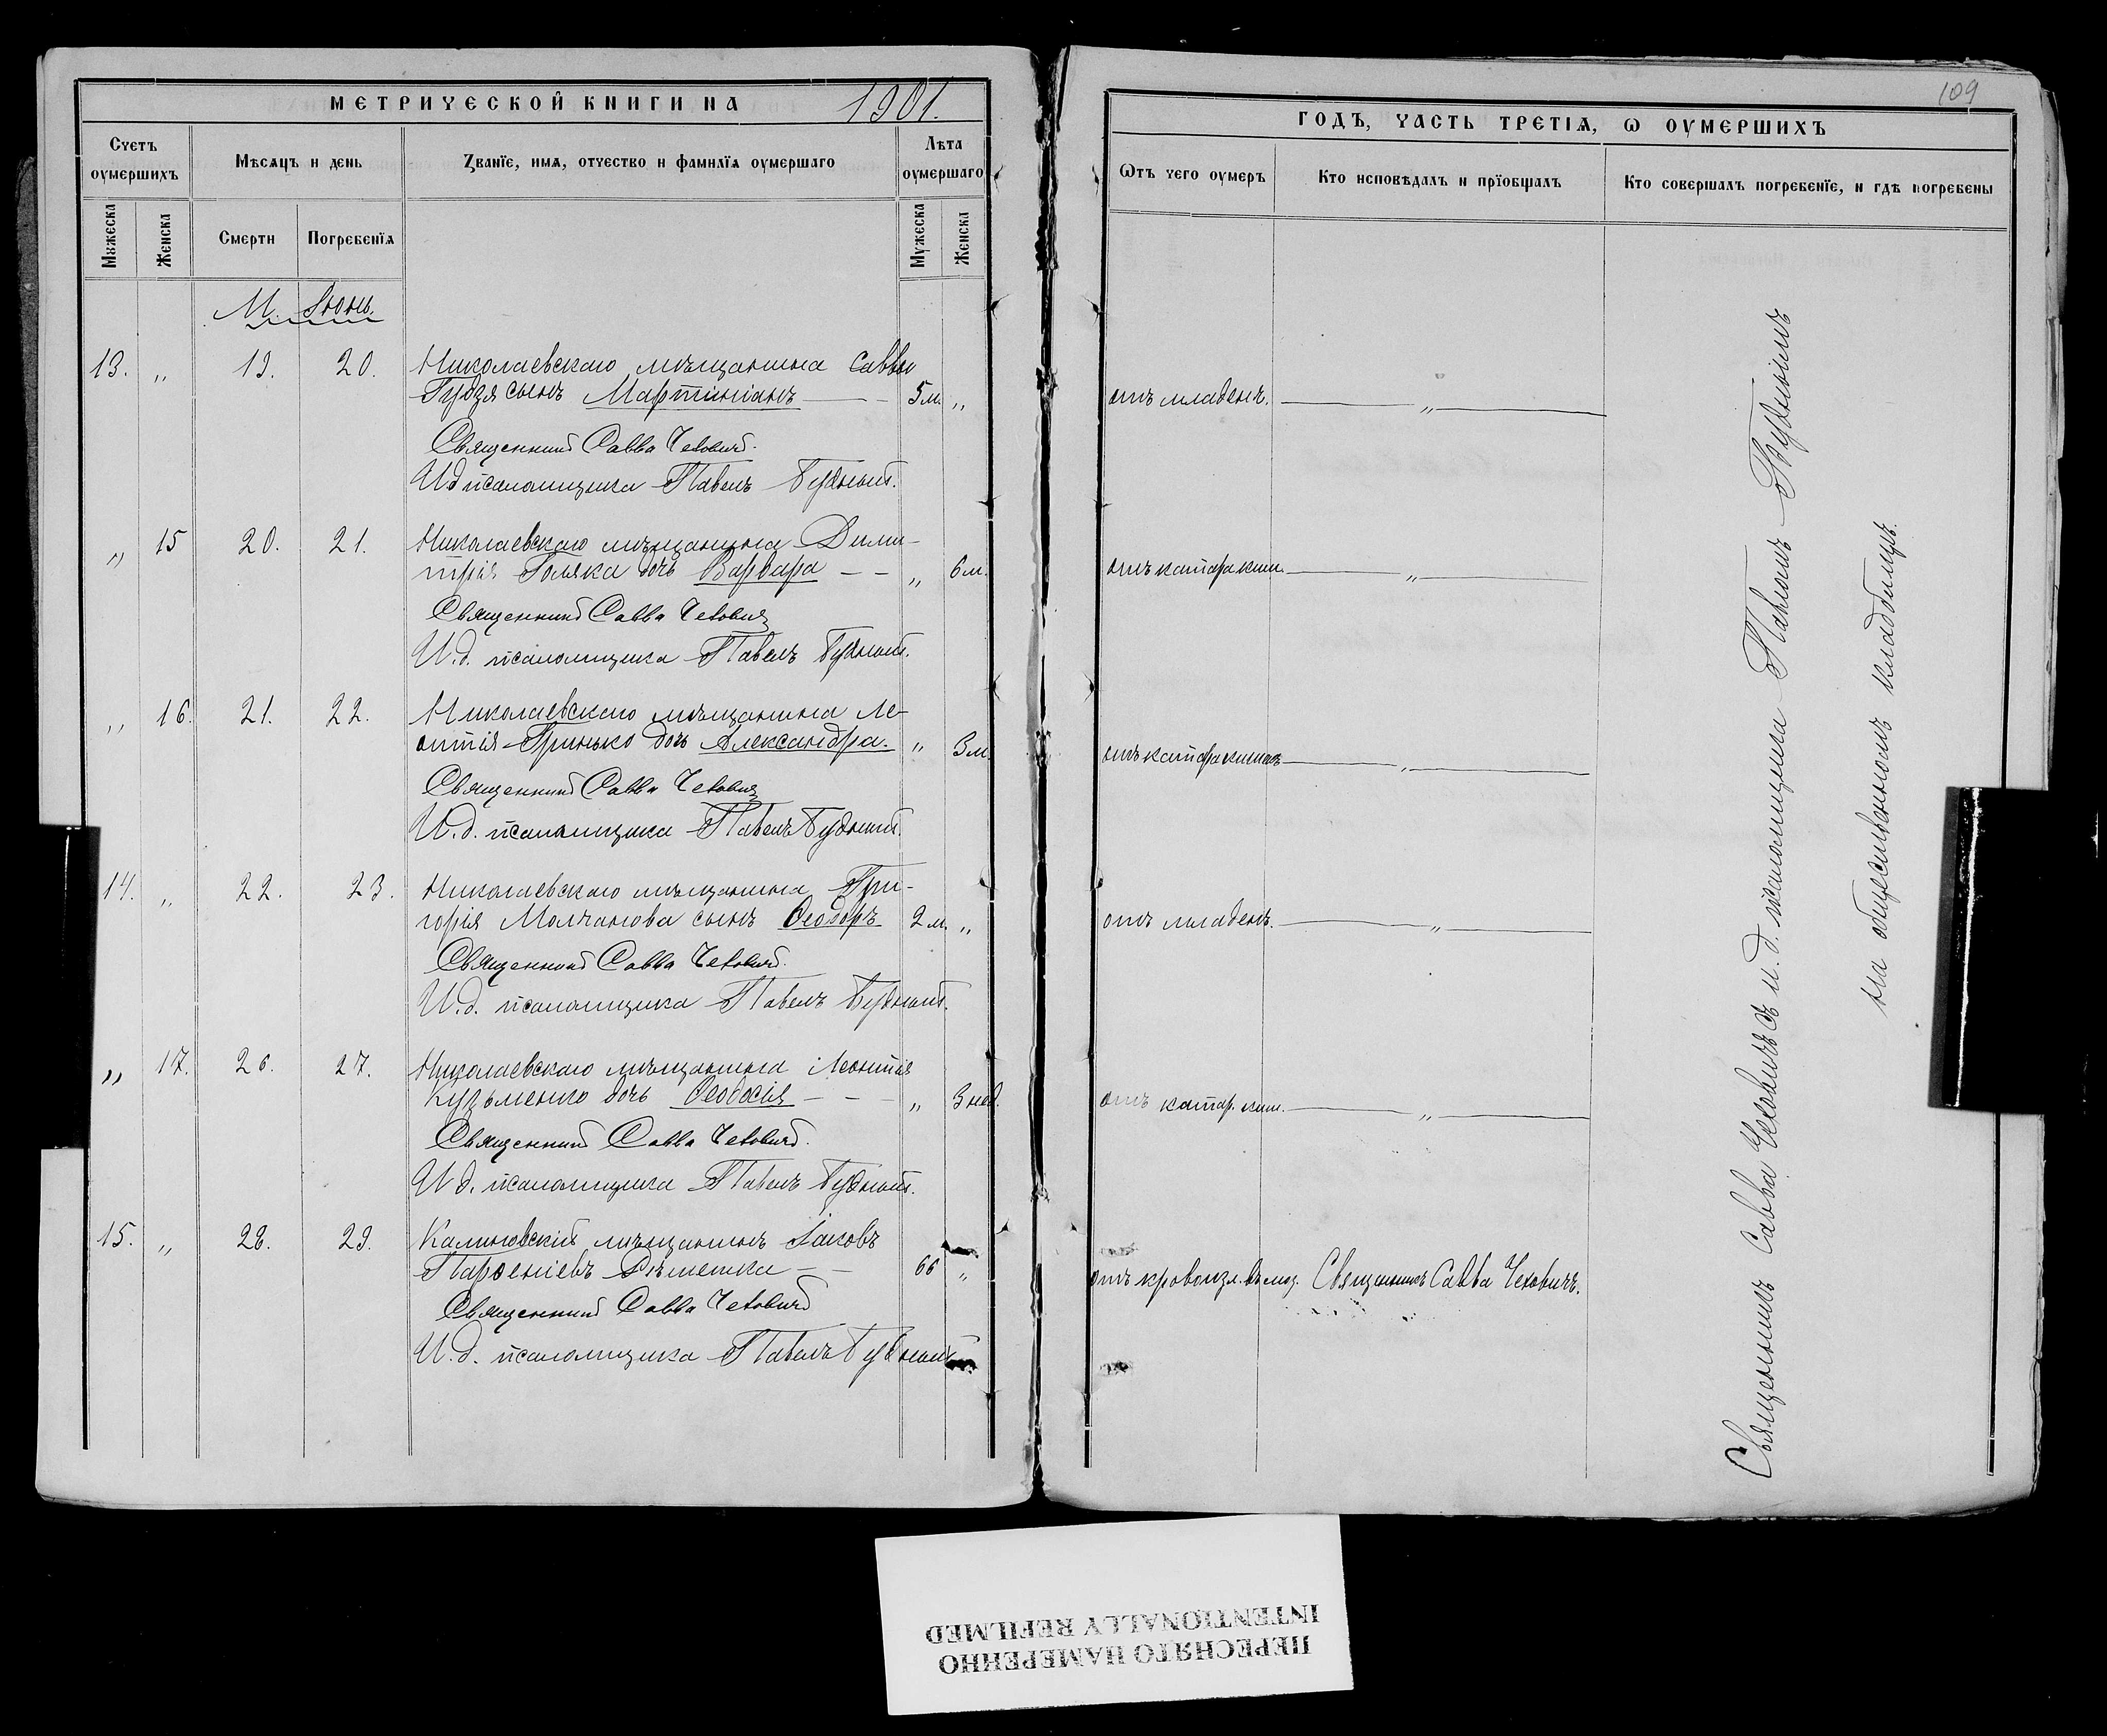 МЕТРИЧЕСКОЙ КНИГИ НА 1901.
Счетъ оумершихъ
Мѣсяцъ и день
Званіе, имя, отчество и фамилія оумершаго
Лѣта оумершаго
Мужеска
Женска
Смерти
Погребенія
Мужеска
Женска
М. Іюнь.
13. „ 19. 20. Николаевскаго мѣщанина Саввы
Гудзя сынъ Мартиніанъ — 5 м. „
Священник Савва Чехович.
И д псаломщика Павелъ Будный.
„ 15 20. 21. Николаевскаго мѣщанина Дими-
трія Голяка дочь Варвара — — „ 6 м.
Священник Савва Чехович
И. д. псаломщика Павелъ Будный.
„ 16. 21. 22. Николаевскаго мѣщанина Ле-
онтія Гринько дочь Александра. „ 3 м.
Священник Савва Чехович
И. д. псаломщика Павелъ Будный.
14. „ 22. 23. Николаевскаго мѣщанина Гри-
горія Молчанова сынъ Ѳеодоръ 2 м. „
Священник Савва Чехович.
И. д. псаломщика Павелъ Будный.
„ 17. 26. 27. Николаевскаго мѣщанина Леонтія
Кузьменко дочь Ѳеодосія — — „ 3 нед.
Священник Савва Чехович.
И д. псаломщика Павелъ Будный.
15. „ 28. 29. мѣщанинъ Іаковъ
Парѳеніевъ — — 66 „
Священник Савва Чехович
И. д. псаломщика Павелъ Будный
109
ГОДЪ, ЧАСТЬ ТРЕТІЯ, Ѡ ОУМЕРШИХЪ
Ѿтъ чего оумеръ
Кто исповѣдалъ и пріобщалъ
Кто совершалъ погребеніе, и гдѣ погребены
отъ младенч. — „ —
отъ катара киш. — „ —
отъ катара кишекъ — „ —
отъ младенч. — „ —
отъ катар. киш. — „ —
отъ кровоизл. въ моз. Священникъ Савва Чеховичъ.
Священникъ Савва Чеховичъ съ и. д. псаломщика Павломъ Буднымъ
на общественномъ кладбищѣ.
ПЕРЕСНЯТО НАМЕРЕННО
INTENTIONALLY REFILMED